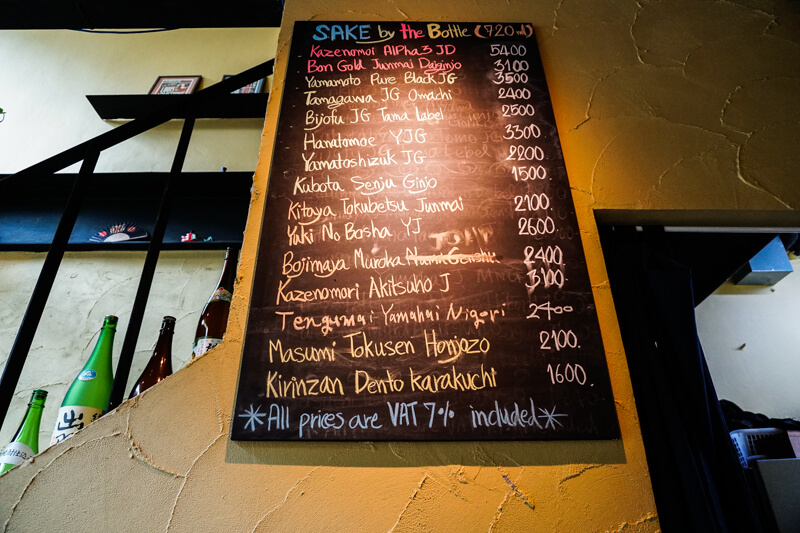 SAKE by the Bottle (720ml)
Kazenomoi Alpha3 JD 5400
Bon Gold Junmai Daiginjo 3100
Yamamoto Pure Black JG 3500
Tamagawa JG Omachi 2400
Bijofu JG Tama Label 2500
Hanatomoe YJG 3300
Yamatoshizuk JG 2200.
Kubota Senju Ginjo 1500.
Kitaya Tokubetsu Junmai 2100.
Yuki No Bosha YJ 2600.
Bojimaya Muroka 2400.
Kazenomori Akitsuho J 3100
Tengumai Yamahai Nigori 2400
Masumi Tokusen Honjozo 2100.
Kirinzan Dento Karakuchi 1600.
*All prices are VAT 7% included*